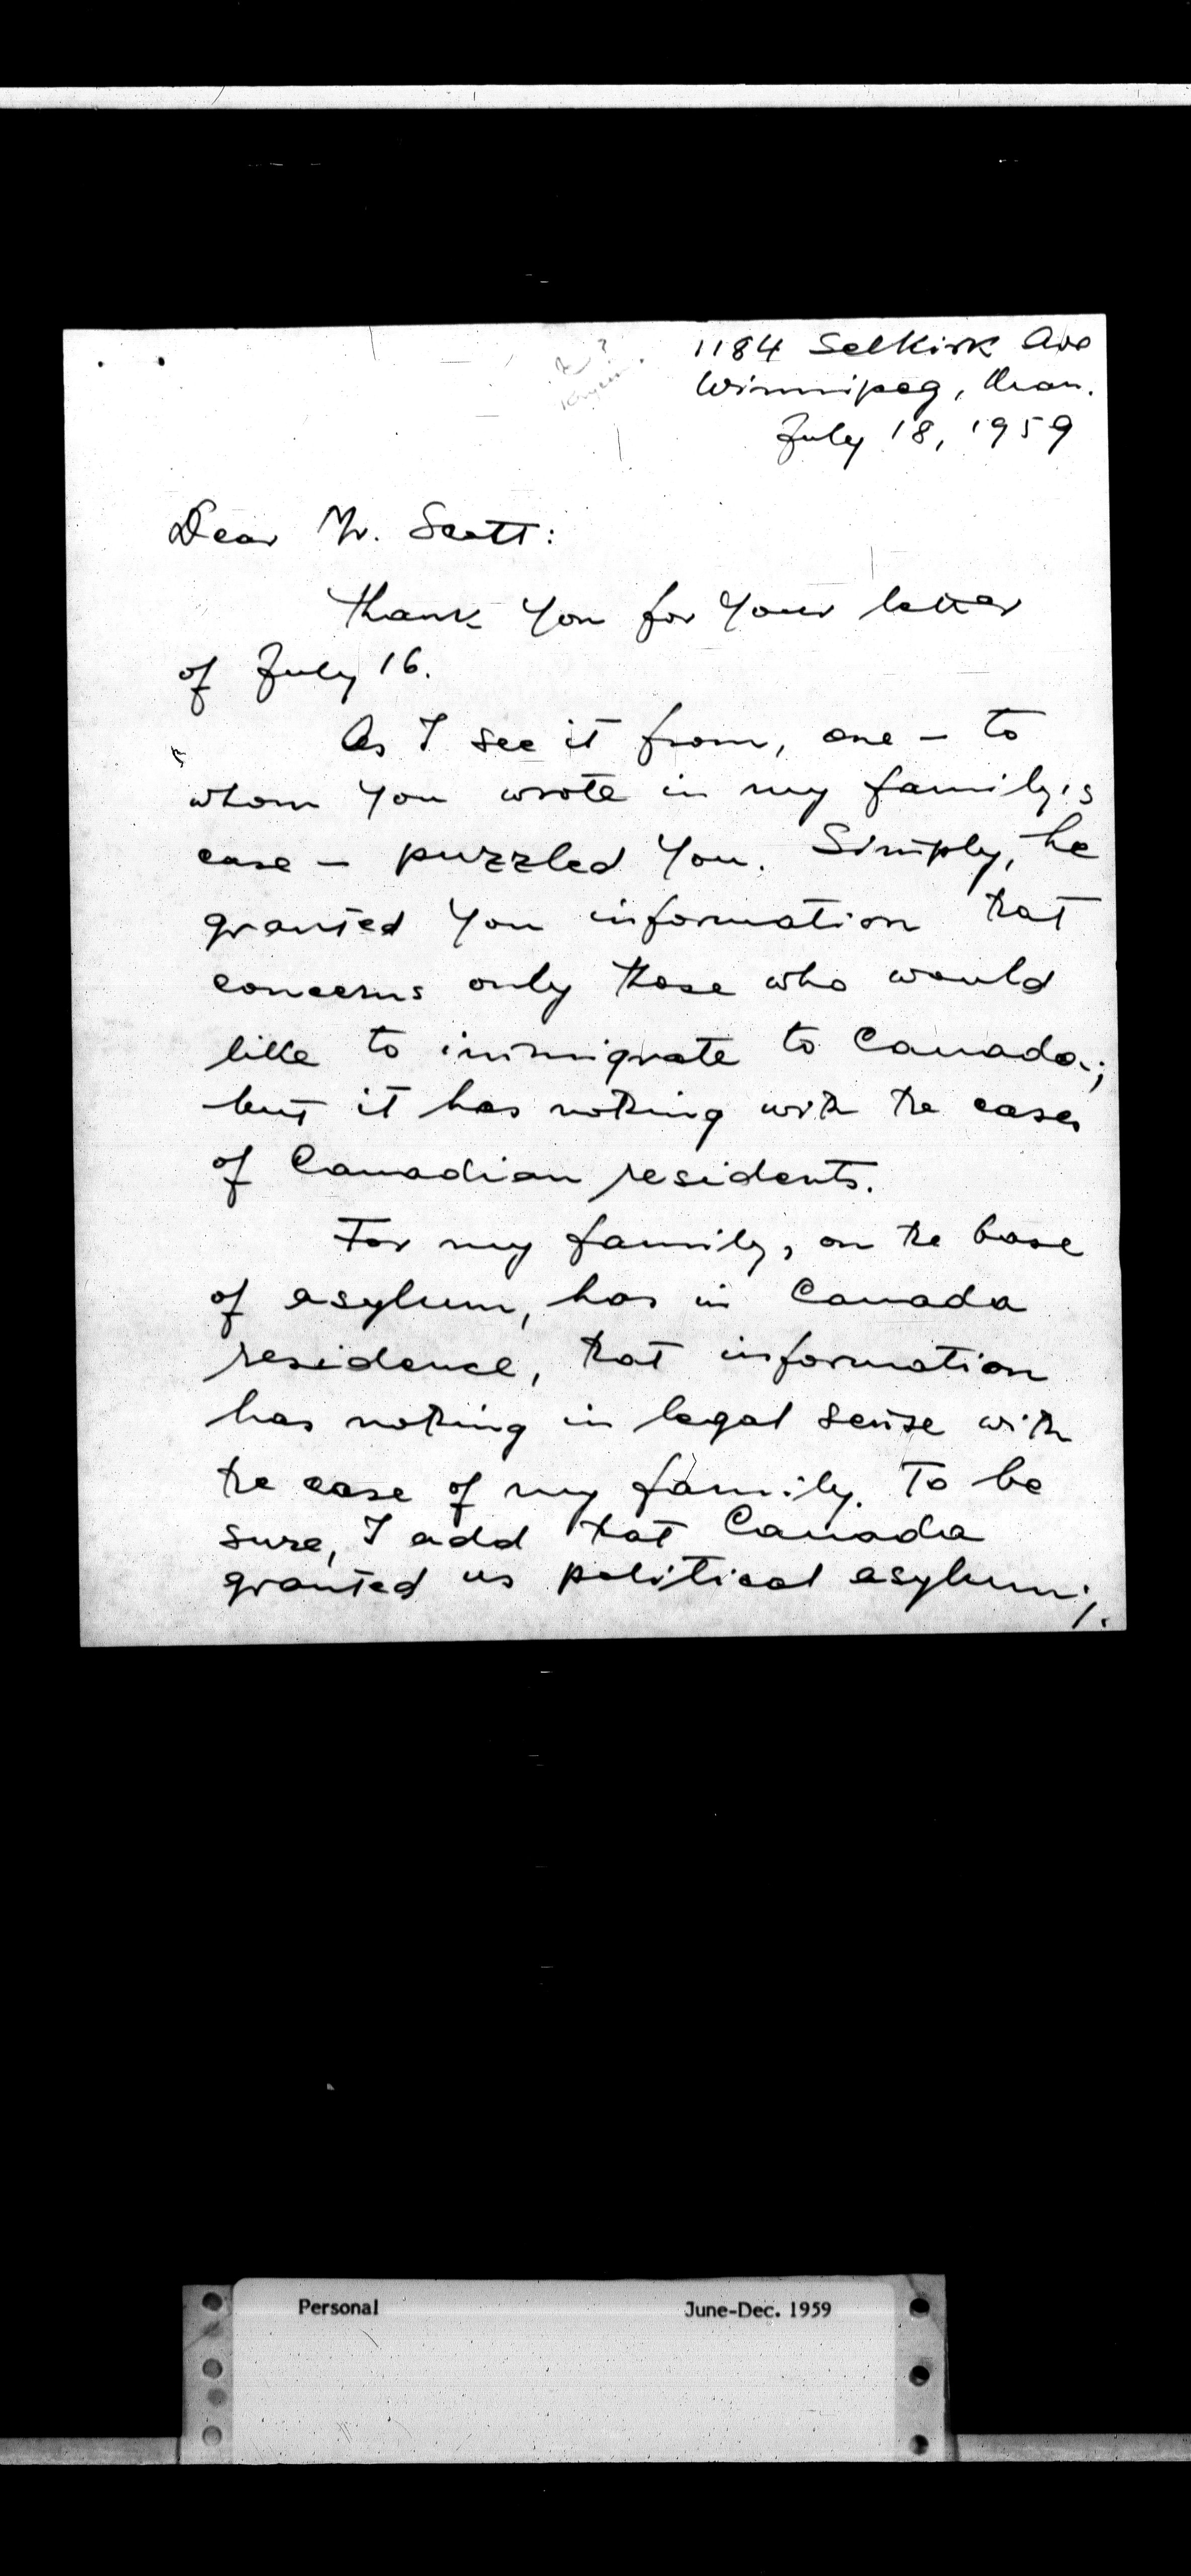 1184 Selkirk Ave
Winnipeg, Man.
July 18, 1959
Dear Mr. Scott:
Thank you for your letter
of July 16.
As I see it from, one – to
whom you wrote in my family's
case – puzzled you. Simply, he
granted you information that
concerns only those who would
like to immigrate to Canada;
but it has nothing with the cases
of Canadian residents.
For my family, on the base
of asylum, has in Canada
residence, that information
has nothing in legal sense with
the case of my family. To be
sure, I add that Canada
granted us political asylum;
/.
Personal June-Dec. 1959